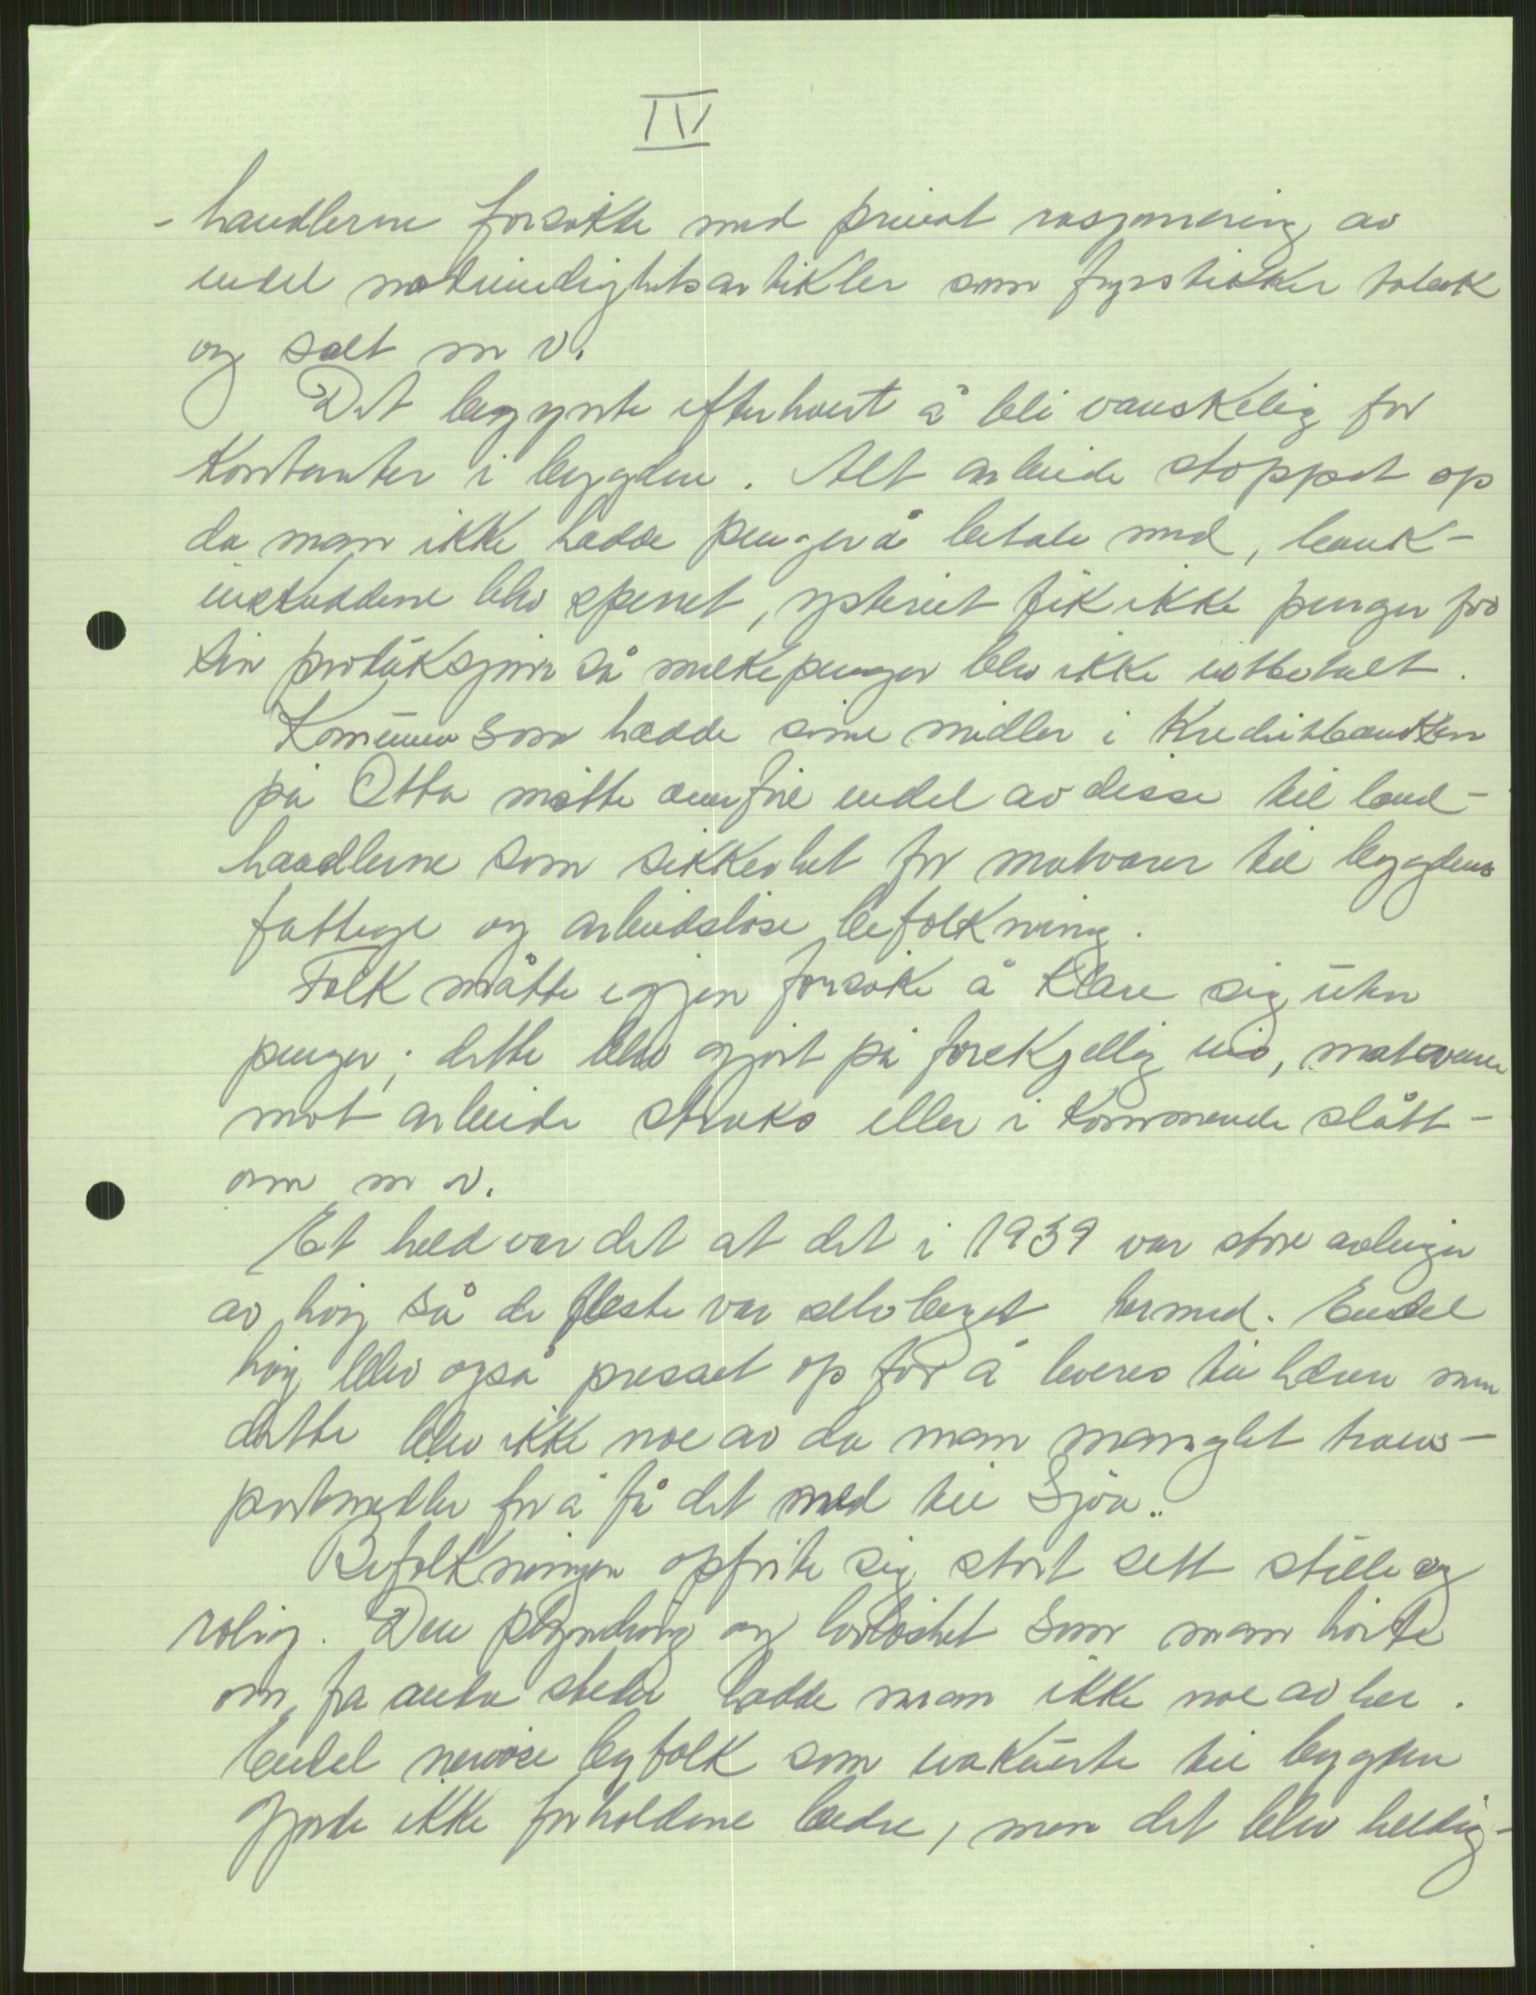 IV
- handlerne forsøkte med privat rasjonering av
endel nødvendighetsartikler som fyrstikker tobak
og salt m v.
Det begynte efterhvert å bli vanskelig for
kontanter i bygden. Alt arbeide stoppet op
da man ikke hadde penger å betale med, bank-
inskuddene blev sperret, ysteriet fik ikke penger for
sin produksjon så melkepenger blev ikke utbetalt.
Komunen som hadde sine midler i Kreditbanken
på Otta måtte overføre endel av disse til land-
handlerne som sikkerhet for matvarer til bygdens
fattige og arbeidsløse befolkning.
Folk måtte igjen forsøke å klare sig uten
penger; dette blev gjort på forskjellig vis, matvarer
mot arbeide straks eller i kommende slått-
onn m v.
Et held var det at det i 1939 var store avlinger
av høy så de fleste var selvberget hermed. Endel
høy blev også presset op for å leveres til hæren men
dette blev ikke noe av da man manglet trans-
portmidler for å få det med til Sjoa.
Befolkningen opførte sig stort sett stille og
rolig. Den plyndring og lovløshet som man hørte
om fra andre steder hadde man ikke noe av her.
Endel nervøse byfolk som evakuerte til bygden
gjorde ikke forholdene bedre, men det blev heldig-